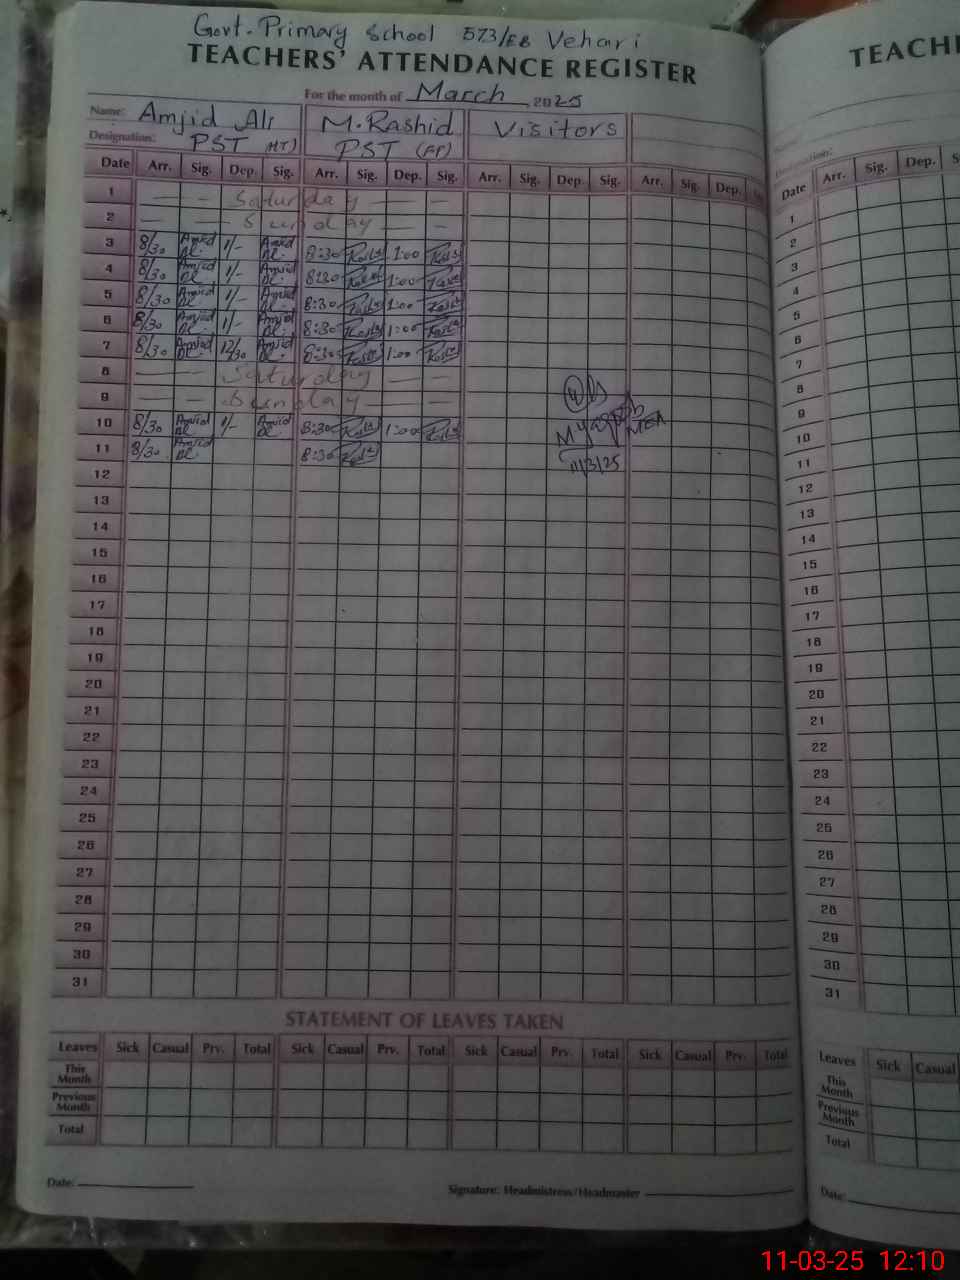 Govt. Primary School 573/EB Vehari
TEACHERS' ATTENDANCE REGISTER
For the month of March 2025
Name: Amjid Ali M. Rashid Visitors
Designation: PST (HT) PST
Date Arr. Sig. Dep. Sig. Arr. Sig. Dep. Sig. Arr. Sig. Dep. Sig. Arr. Sig. Dep.
1 — — Saturday — —
2 — — Sunday — —
3 8/30 Amjid 1/- Amjid 8:30 1:00
4 8/30 Amjid 1/- Amjid 8:30 1:00
5 8/30 Amjid 1/- Amjid 8:30 1:00
6 8/30 Amjid 1/- Amjid 8:30 1:00
7 8/30 Amjid 12/30 Amjid 8:30 1:00
8 — — Saturday — —
9 — — Sunday — —
10 8/30 Amjid 1/- Amjid 8:30 1:00
11 8/30 Amjid 8:30
MEA
11/3/25
12
13
14
15
16
17
18
19
20
21
22
23
24
25
26
27
28
29
30
31
STATEMENT OF LEAVES TAKEN
Leaves Sick Casual Prv. Total Sick Casual Prv. Total Sick Casual Prv. Total Sick Casual Prv. Total
This Month
Previous Month
Total
Date: Signature: Headmistress/Headmaster
TEACH
Date Arr. Sig. Dep. S
1
2
3
4
5
6
7
8
9
10
11
12
13
14
15
16
17
18
19
20
21
22
23
24
25
26
27
28
29
30
31
Leaves Sick Casual
This Month
Previous Month
Total
Date:
11-03-25 12:10